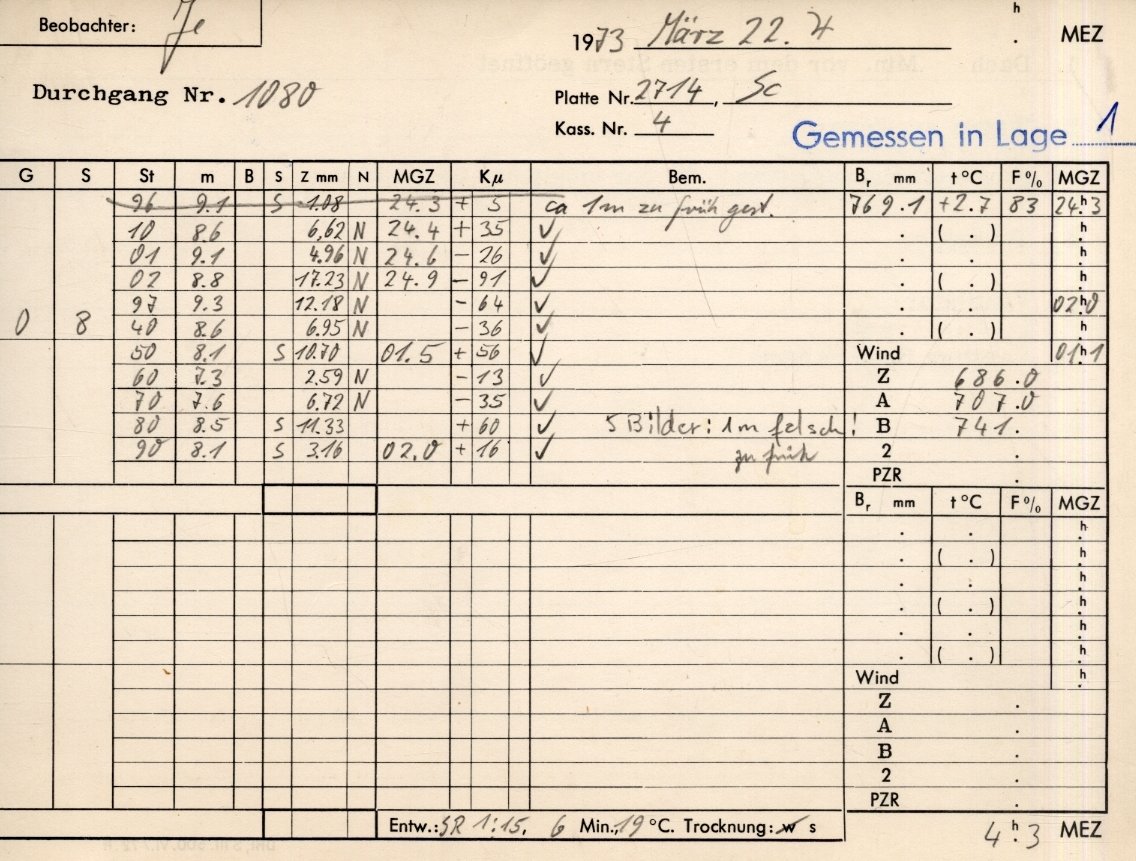 Beobachter: Je
1973 März 22. 4 h . MEZ
Durchgang Nr. 1080
Platte Nr. 2714, Sc
Kass. Nr. 4
Gemessen in Lage 1
G S St m B S Z mm N MGZ Kµ Bem. Br mm t °C F % MGZ
96 9.1 S 1.08 24.3 + 5 ca 1m zu früh gest. 769.1 +2.7 83 24h.3
10 8.6 6,62 N 24.4 + 35 ✓ . ( . ) h.
01 9.1 4.96 N 24.6 - 26 ✓ . . h.
02 8.8 17.23 N 24.9 - 91 ✓ . ( . ) h.
97 9.3 12.18 N - 64 ✓ . . 02h.0
0 8 40 8.6 6.95 N - 36 ✓ . ( . ) h.
50 8.1 S 10.70 01.5 + 56 ✓ Wind 01h.1
60 7.3 2.59 N - 13 ✓ Z 686.0
70 7.6 6.72 N - 35 ✓ A 707.0
80 8.5 S 11.33 + 60 ✓ 5 Bilder: 1m falsch! B 741.
90 8.1 S 3.16 02.0 + 16 ✓ zu früh 2 .
PZR .
Br mm t °C F % MGZ
. . h.
. ( . ) h.
. . h.
. ( . ) h.
. . h.
. ( . ) h.
Wind h.
Z .
A .
B .
2 .
PZR .
Entw.: SR 1:15, 6 Min., 19 °C. Trocknung: w s
4h.3 MEZ